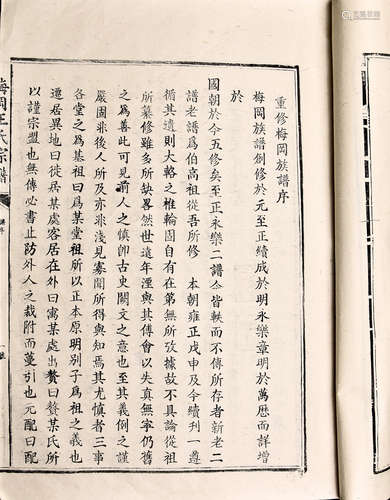 重修梅岡族譜序
梅岡族譜例修於元至正續成於明永樂章明於萬厯而詳增
於
國朝於今五修矣至正永樂二譜仝皆軼而不傳所存者新老二
譜老譜爲伯高祖從吾所修 本朝雍正戊申及今續刊一遵
循其遺則大輅之椎輪固自有在第無所攷據故不具論從祖
所纂修雖多所缺畧然世遠年湮與其傅會以失真無寧仍舊
之爲善此可見前人之慎卽古史闕文之意也至其義例之謹
嚴固非後人所及亦非淺見寡聞所得與知焉其尤慎者三事
各堂之爲基祖曰爲某堂祖所以正本原明別子爲祖之義也
遷居異地曰徙居某處客居在外曰寓某處出贅曰贅某氏所
以謹宗盟也無傳必書止防外人之裁附而蔓引也元配曰配
梅岡王氏宗譜